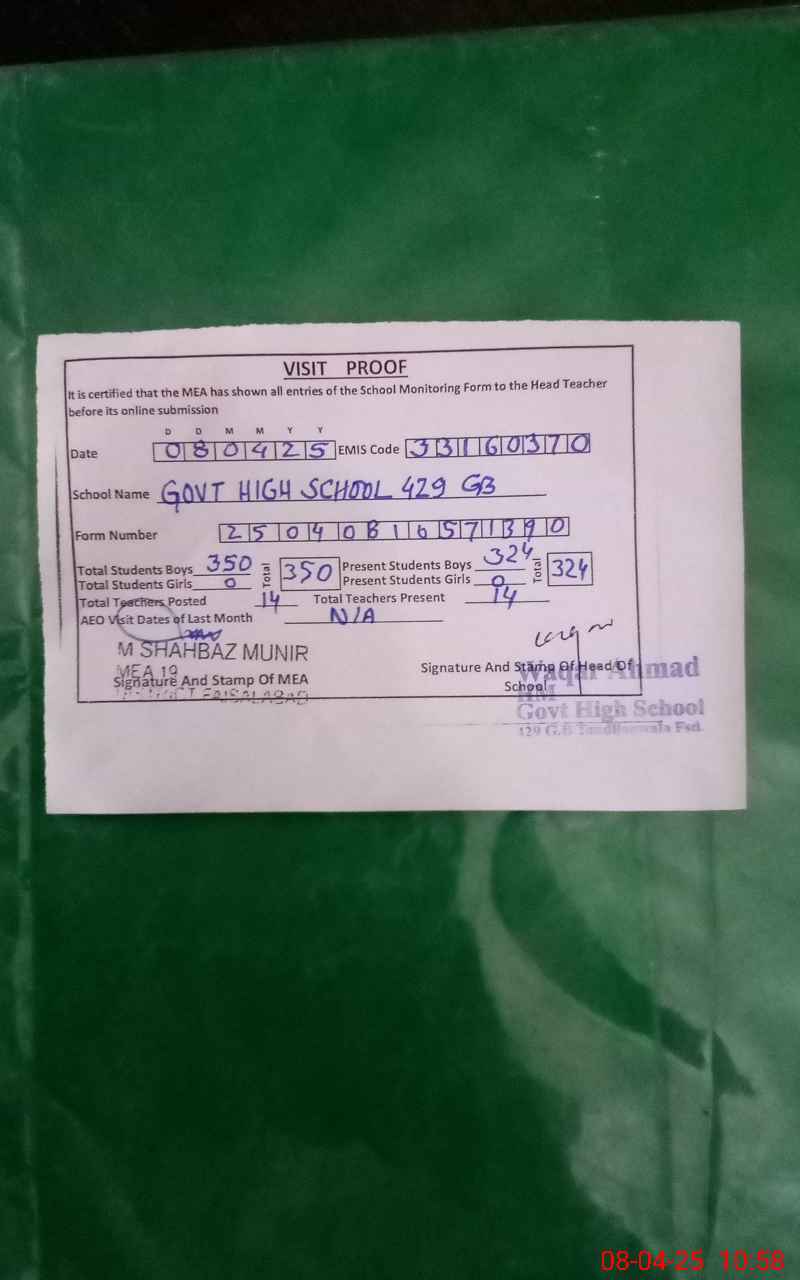 VISIT PROOF
It is certified that the MEA has shown all entries of the School Monitoring Form to the Head Teacher
before its online submission
D D M M Y Y
Date 080425 EMIS Code 33160370
School Name GOVT HIGH SCHOOL 429 GB
Form Number 25040816571390
Total Students Boys 350 Total 350 Present Students Boys 324 Total 324
Total Students Girls 0 Present Students Girls 0
Total Teachers Posted 14 Total Teachers Present 14
AEO Visit Dates of Last Month N/A
M SHAHBAZ MUNIR
MEA 19
Signature And Stamp Of MEA
FAISALABAD
Signature And Stamp Of Head Of
School
Waqar Ahmad
HM
Govt High School
429 G.B Fsd.
08-04-25 10:58